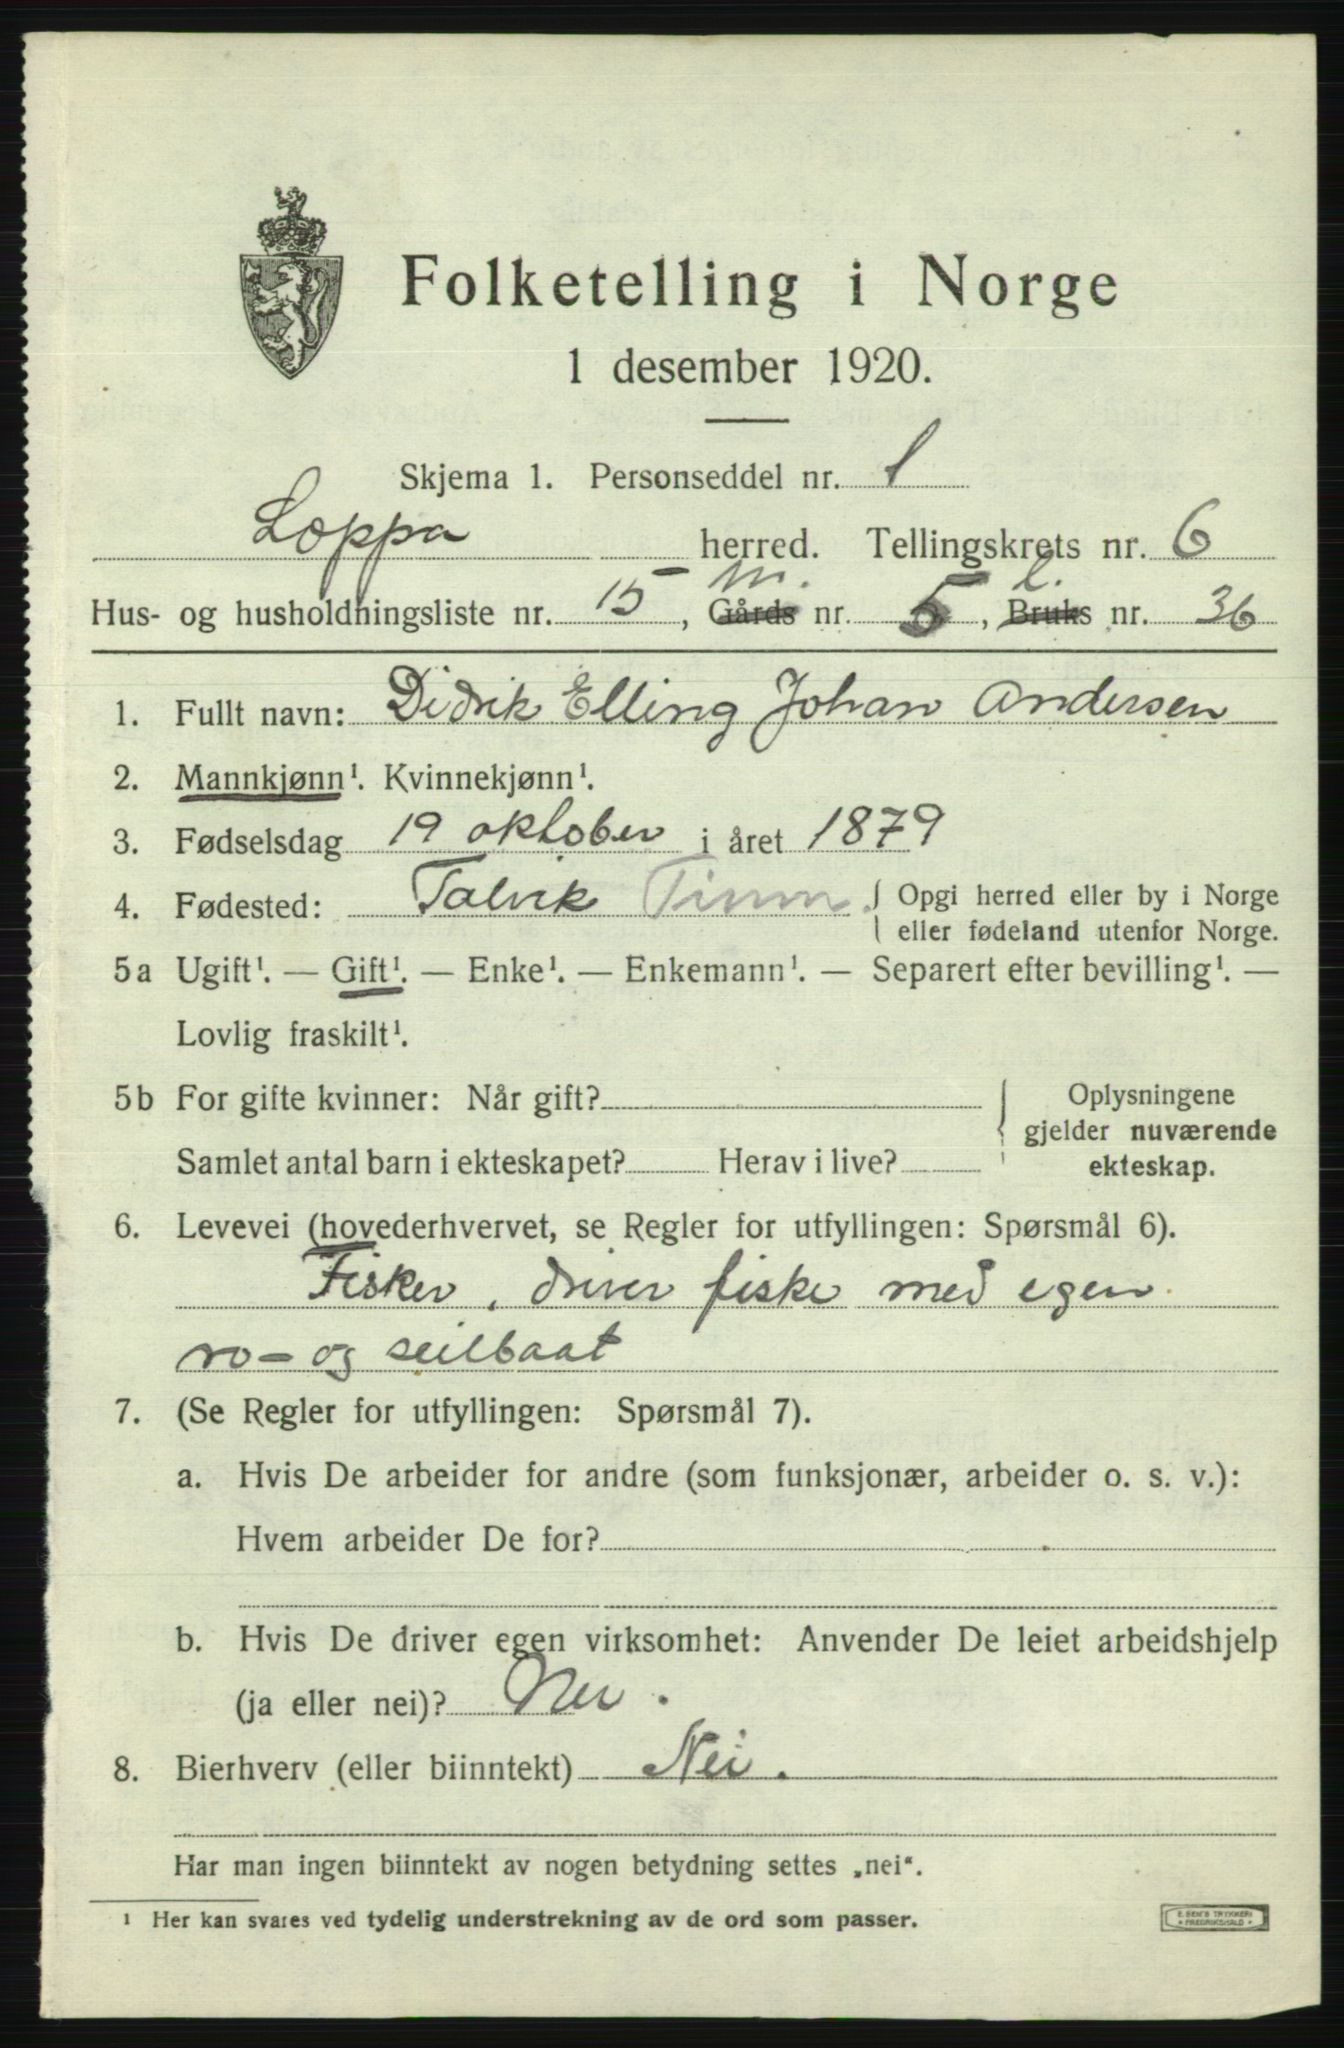 Folketelling i Norge
1 desember 1920.
Skjema 1. Personseddel nr. 1
Loppa herred. Tellingskrets nr. 6
m. l.
Hus- og husholdningsliste nr. 15, Gårds nr. 5, Bruks nr. 36
1. Fullt navn: Didrik Elling Johan Andersen
2. Mannkjønn¹. Kvinnekjønn¹.
3. Fødselsdag 19 oktober i året 1879
4. Fødested: Talvik Finm. Opgi herred eller by i Norge
eller fødeland utenfor Norge.
5a Ugift¹. — Gift¹. — Enke¹. — Enkemann¹. — Separert efter bevilling¹. —
Lovlig fraskilt¹.
5b For gifte kvinner: Når gift? Oplysningene
gjelder nuværende
Samlet antal barn i ekteskapet? Herav i live? ekteskap.
6. Levevei (hovederhvervet, se Regler for utfyllingen: Spørsmål 6).
Fisker, driver fiske med egen
ro- og seilbaat
7. (Se Regler for utfyllingen: Spørsmål 7).
a. Hvis De arbeider for andre (som funksjonær, arbeider o. s. v.):
Hvem arbeider De for?
b. Hvis De driver egen virksomhet: Anvender De leiet arbeidshjelp
(ja eller nei)? Nei.
8. Bierhverv (eller biinntekt) Nei.
Har man ingen biinntekt av nogen betydning settes „nei“.
¹ Her kan svares ved tydelig understrekning av de ord som passer.
E. SEM'S TRYKKERI
• FREDRIKSHALD •